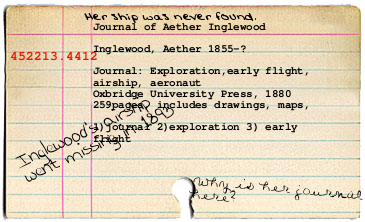 Her ship was never found.
Journal of Aether Inglewood
Inglewood, Aether 1855-?
452213.4412
Journal: Exploration,early flight,
airship, aeronaut
Oxbridge University Press, 1880
259pages, includes drawings, maps,
1)journal 2)exploration 3) early
flight
Inglewood's airship
went missing in 1893
Why is her journal
here?